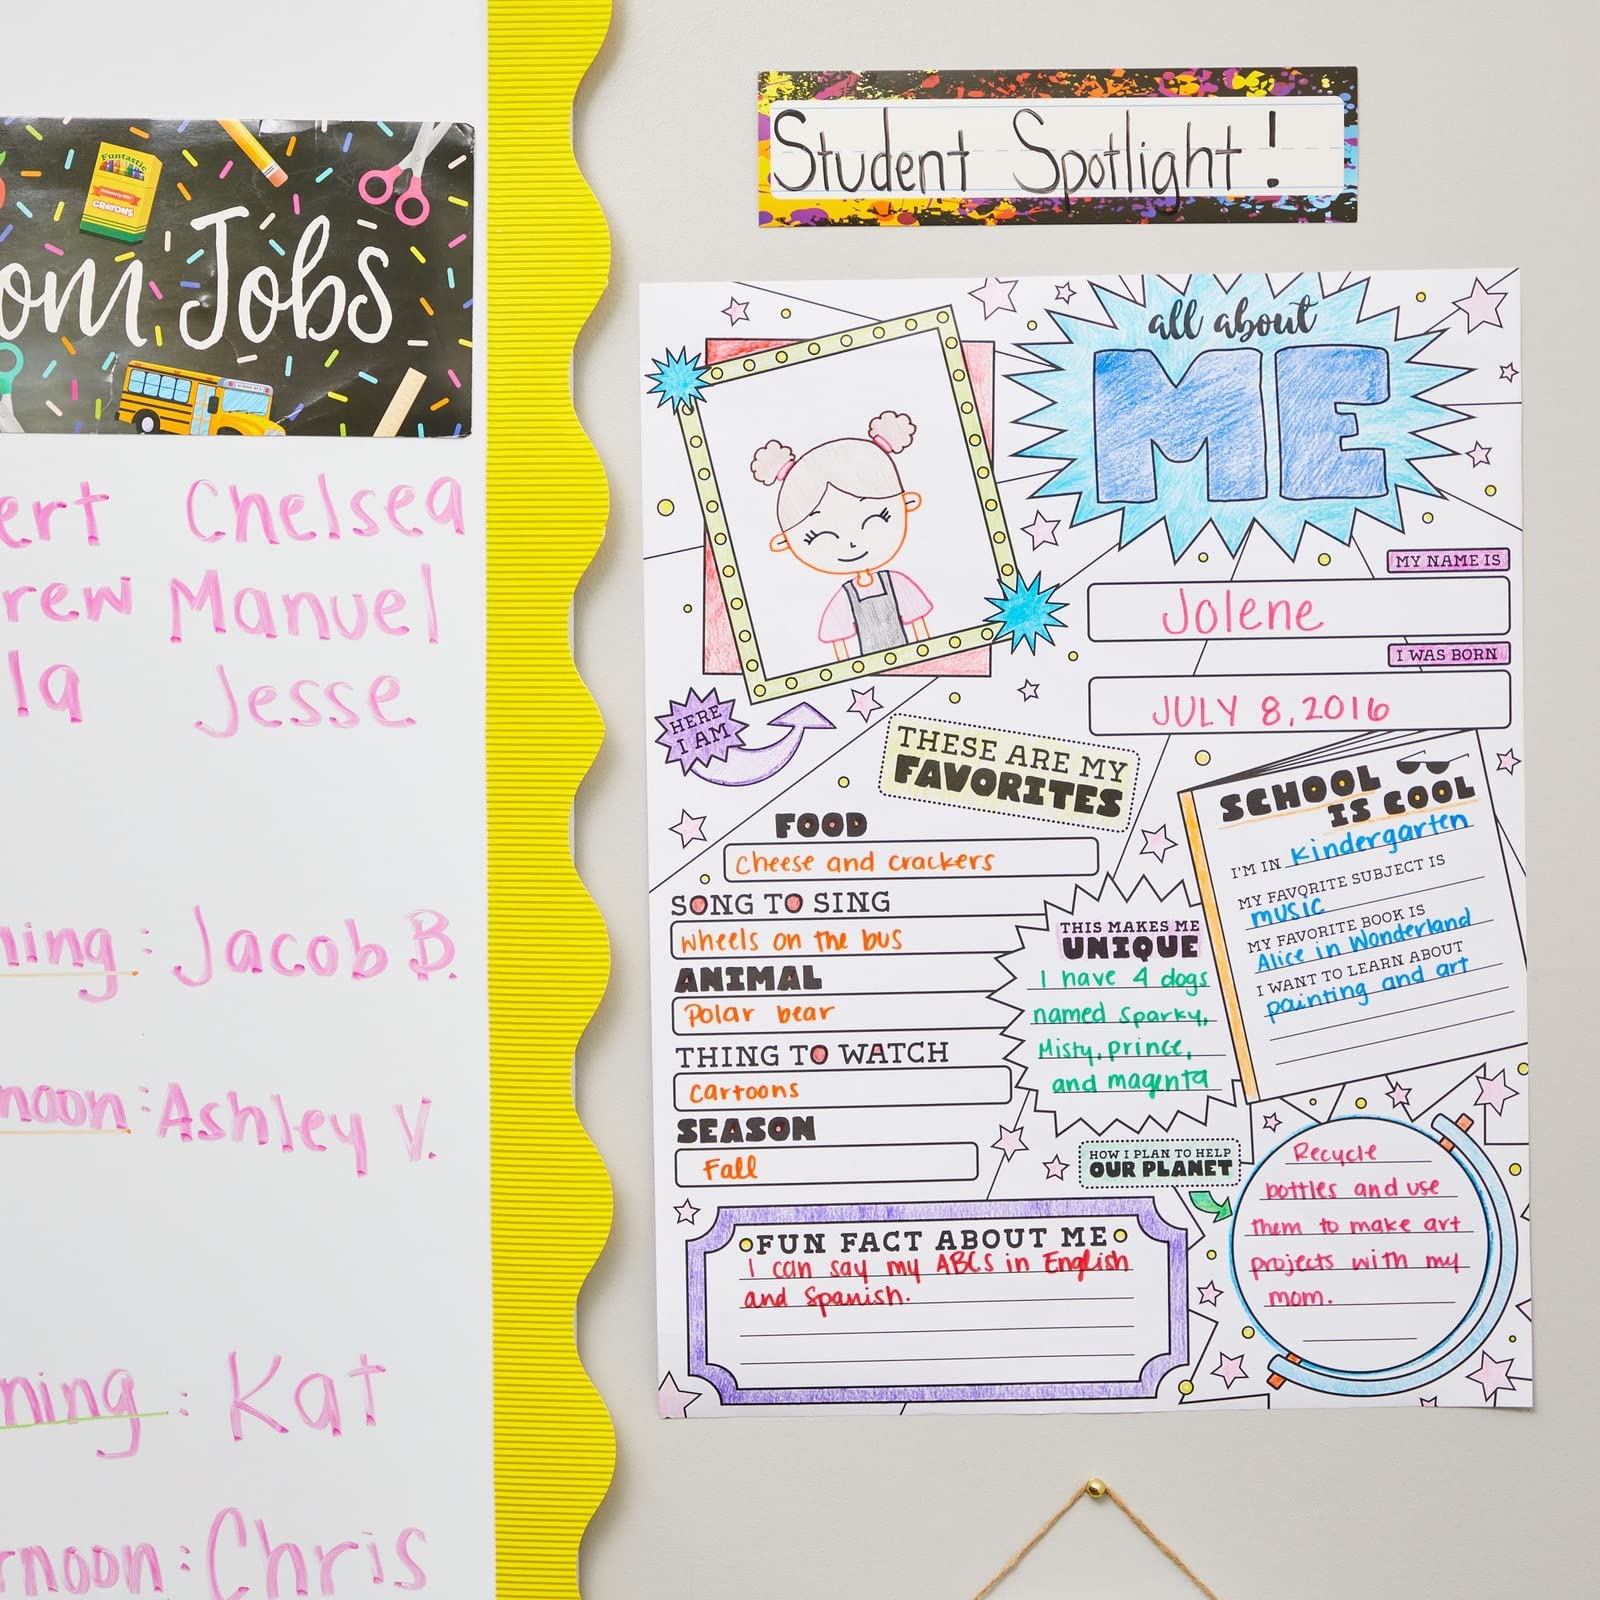 Funtastic
CRAYONS
om Jobs
ert Chelsea
rew Manuel
la Jesse
ning: Jacob B.
noon: Ashley V.
ning: Kat
rnoon: Chris
Student Spotlight!
all about
ME
MY NAME IS
Jolene
I WAS BORN
JULY 8, 2016
HERE
I AM
THESE ARE MY
FAVORITES
FOOD
Cheese and crackers
SONG TO SING
Wheels on the bus
ANIMAL
Polar bear
THING TO WATCH
Cartoons
SEASON
Fall
THIS MAKES ME
UNIQUE
I have 4 dogs
named Sparky,
Misty, Prince,
and magenta
SCHOOL
IS COOL
I'M IN kindergarten
MY FAVORITE SUBJECT IS
music
MY FAVORITE BOOK IS
Alice in Wonderland
I WANT TO LEARN ABOUT
painting and art
HOW I PLAN TO HELP
OUR PLANET
Recycle
bottles and use
them to make art
projects with my
mom.
FUN FACT ABOUT ME
I can say my ABCs in English
and Spanish.